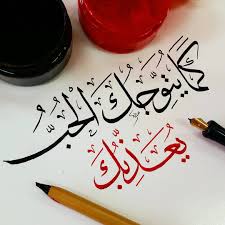 كما يتوجك الحب
يعذبك